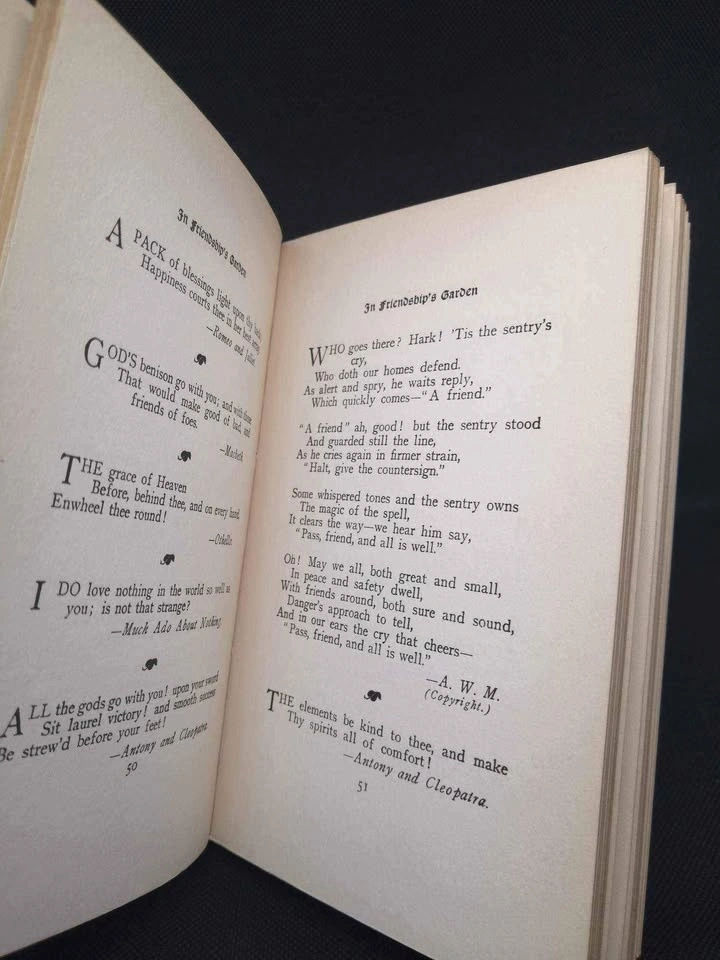 In Friendship's Garden
A PACK of blessings light upon thy back;
Happiness courts thee in her best array.
—Romeo and Juliet.
GOD'S benison go with you; and with those
That would make good of bad, and
friends of foes.
—Macbeth.
THE grace of Heaven
Before, behind thee, and on every hand,
Enwheel thee round!
—Othello.
I DO love nothing in the world so well as
you; is not that strange?
—Much Ado About Nothing.
ALL the gods go with you! upon your sword
Sit laurel victory! and smooth success
Be strew'd before your feet!
—Antony and Cleopatra.
50
In Friendship's Garden
WHO goes there? Hark! 'Tis the sentry's
cry,
Who doth our homes defend.
As alert and spry, he waits reply,
Which quickly comes—"A friend."
"A friend" ah, good! but the sentry stood
And guarded still the line,
As he cries again in firmer strain,
"Halt, give the countersign."
Some whispered tones and the sentry owns
The magic of the spell,
It clears the way—we hear him say,
"Pass, friend, and all is well."
Oh! May we all, both great and small,
In peace and safety dwell,
With friends around, both sure and sound,
Danger's approach to tell,
And in our ears the cry that cheers—
"Pass, friend, and all is well."
—A. W. M.
(Copyright.)
THE elements be kind to thee, and make
Thy spirits all of comfort!
—Antony and Cleopatra.
51